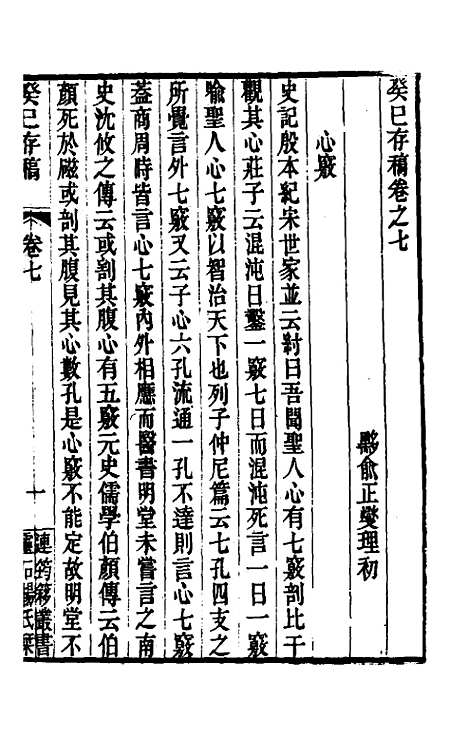 癸巳存稿卷之七
黟俞正燮理初
心竅
史記殷本紀宋世家並云對曰吾聞聖人心有七竅剖比干
觀其心莊子云混沌日鑿一竅七日而混沌死言一日一竅
喻聖人心七竅以智治天下也列子仲尼篇云七孔四支之
所覺言外七竅又云子心六孔流通一孔不達則言心七竅
蓋商周時皆言心七竅內外相應而醫書明堂未嘗言之南
史沈攸之傳云或割其腹心有五竅元史儒學伯顏傳云伯
顏死於磁或剖其腹見其心數孔是心竅不能定故明堂不
癸巳存稿
卷七
一
連筠簃叢書
靈石楊氏栞